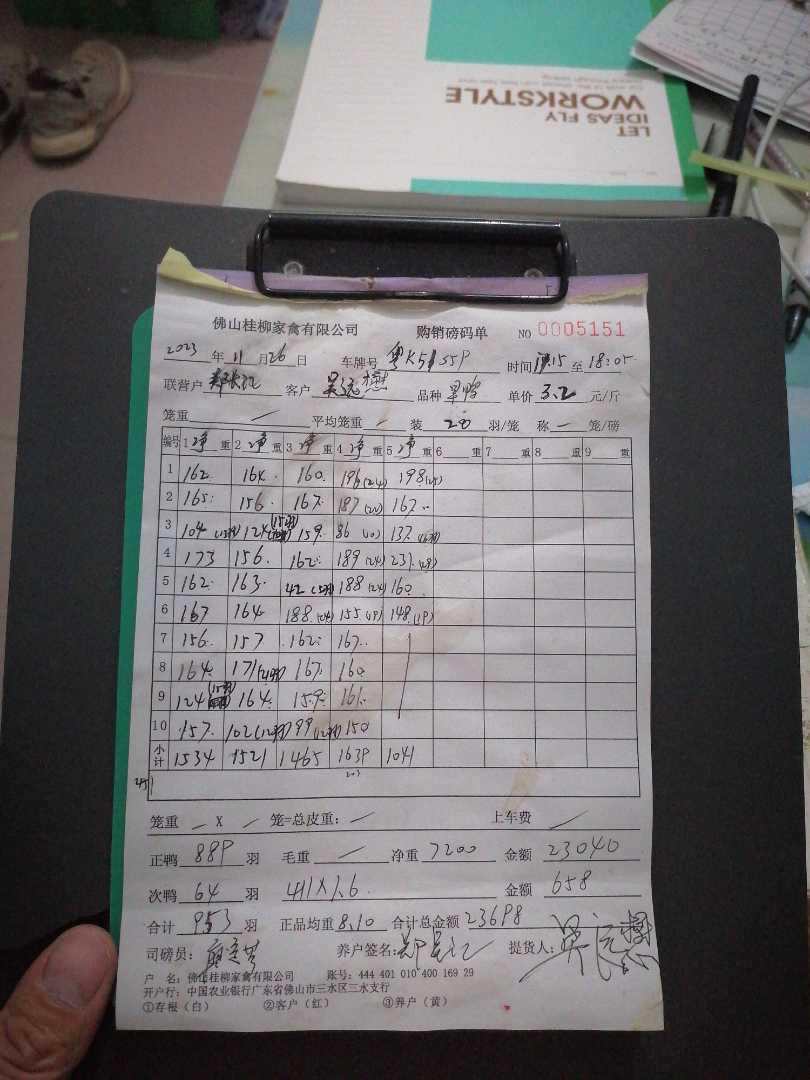 LET
IDEAS FLY
WORKSTYLE
佛山桂柳家禽有限公司 购销磅码单 NO 0005151
2023 年 11 月 26 日 车牌号 时间 至 18:05
联营户 郑长江 客户 品种 单价 3.2 元/斤
笼重 / 平均笼重 / 装 20 羽/笼 称 一 笼/磅
编号 1 净重 2 净重 3 净重 4 净重 5 净重 6 重 7 重 8 重 9 重
1 162 164 160 196(24) 198(25)
2 165 156 167 187 167
3 104 124 159 86(10) 137
4 173 156 162 189(24) 231
5 162 163 42 188(24) 160
6 167 164 188(24) 155(19) 148(19)
7 156 157 162 167
8 164 171 167 160
9 124 164 159 161
10 157 102 99 150
小计 1534 1521 1465 1639 1041
笼重 X 笼=总皮重: 上车费
正鸭 889 羽 毛重 / 净重 7200 金额 23040
次鸭 64 羽 411X1.6 金额 658
合计 953 羽 正品均重 8.10 合计总金额 23698
司磅员: 养户签名: 郑长江 提货人:
户 名: 佛山桂柳家禽有限公司 账号: 444 401 010 400 169 29
开户行: 中国农业银行广东省佛山市三水区三水支行
①存根(白) ②客户(红) ③养户(黄)